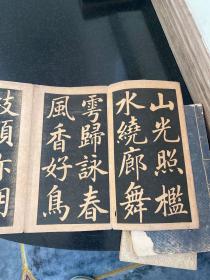 山光照檻
水繞廊舞
雩歸詠春
風香好鳥
枝頭亦朋